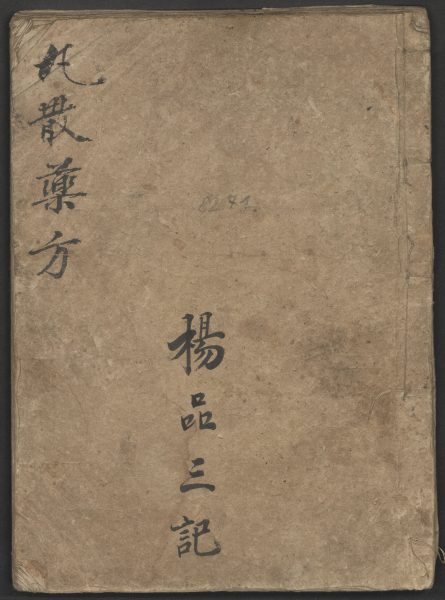 丸散藥方
8241
楊品三記